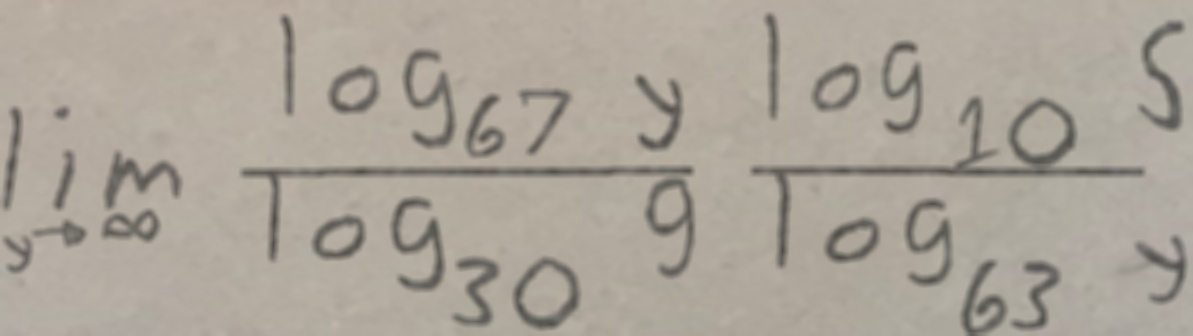 \lim_{y \to \infty} \frac{\log_{67} y}{\log_{30} 9} \frac{\log_{10} 5}{\log_{63} y}